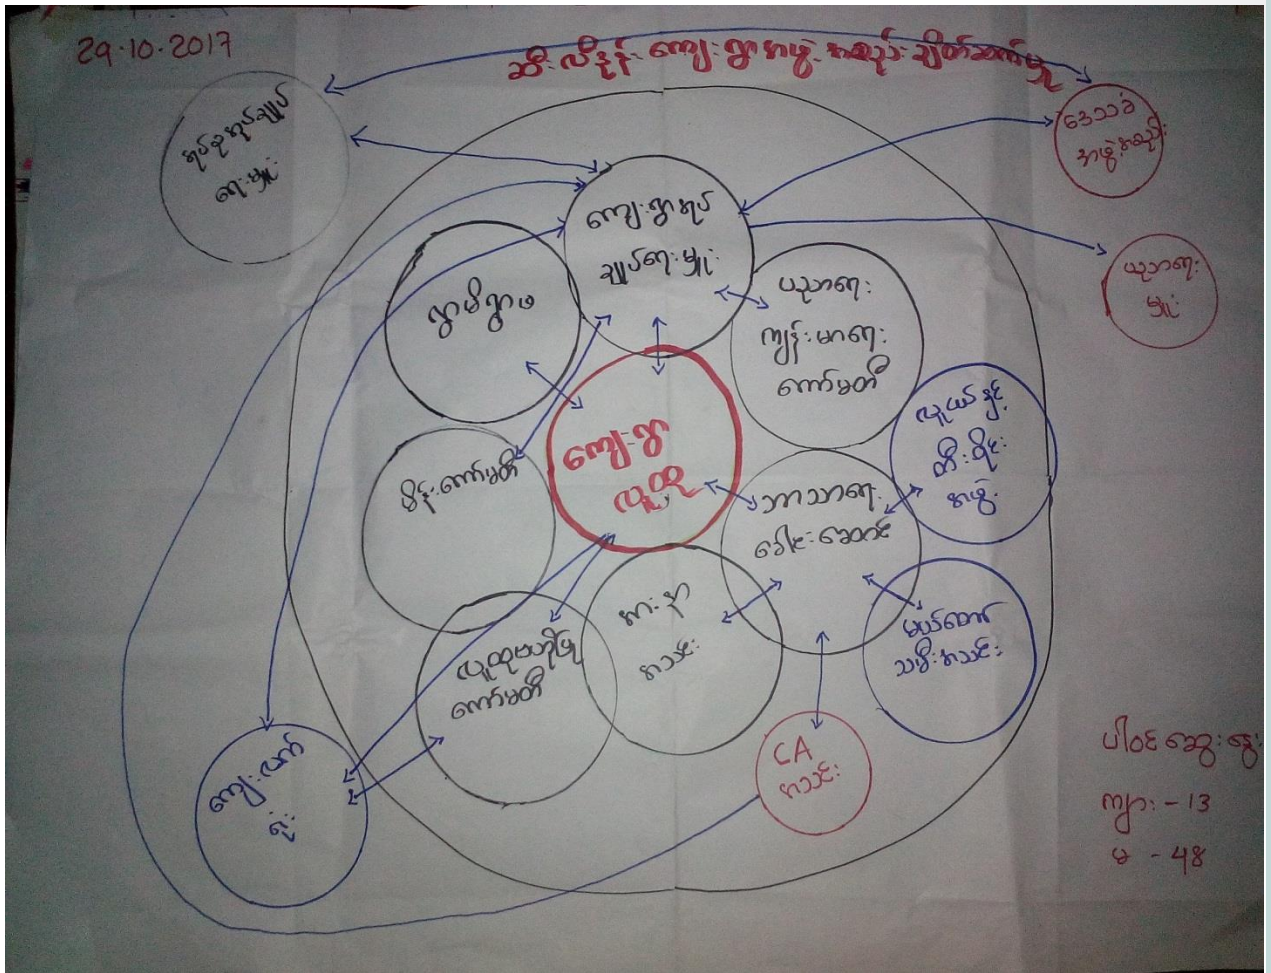 29.10.2017
ဆီးလီနုန်း ကျေးရွာအဖွဲ့ အစည်း ချိတ်ဆက်မှု
ရပ်စုအုပ်ချုပ်
ရေးမှူး
ဒေသခံ
အဖွဲ့အစည်း
ကျေးရွာအုပ်
ချုပ်ရေးမှူး
ပညာရေး
မှူး
ရွာမိရွာဖ
ပညာရေး
ကျန်းမာရေး
ကော်မတီ
လူငယ်နှင့်
တီးဝိုင်း
အဖွဲ့
ကျေးရွာ
လူထု
မိန်းကော်မတီ
ဘာသာရေး
ခေါင်းဆောင်
နာ
အသင်း
မယ်တော်
သမီးအသင်း
လူထုဗဟိုပြု
ကော်မတီ
ကျေးလက်
CA
အသင်း
ပါဝင် ဆွေးနွေး
ကျား - 13
မ - 48